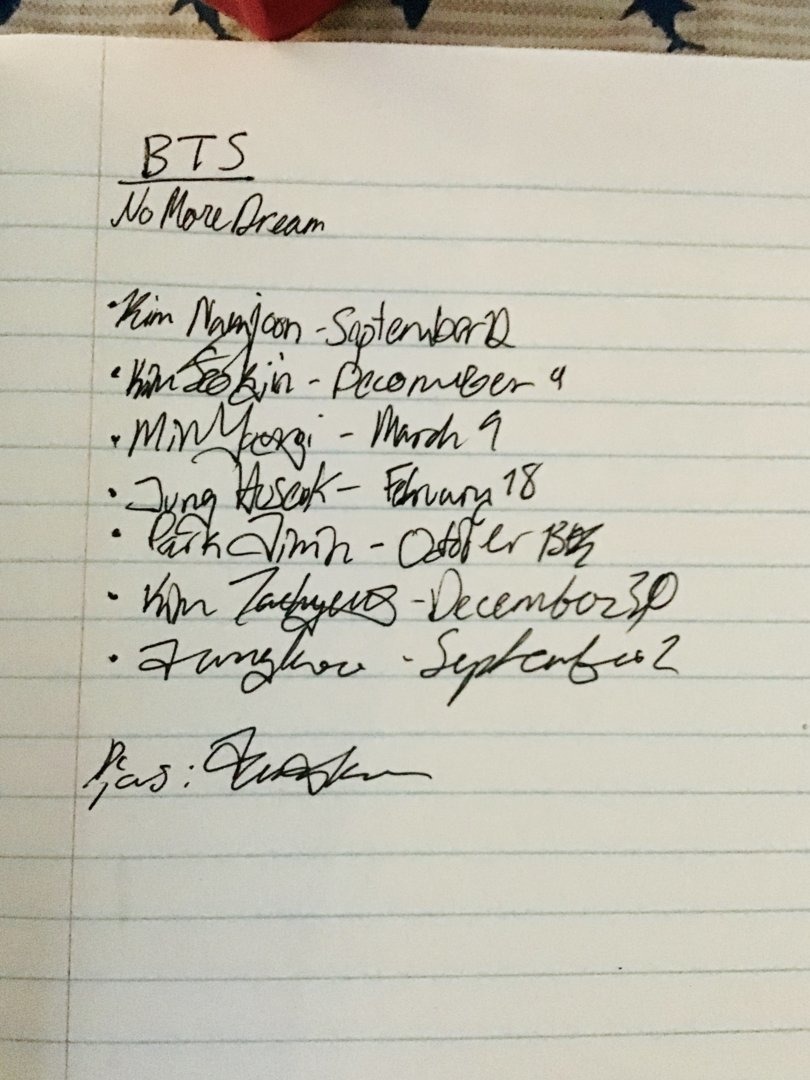 BTS
No More Dream
• Kim Namjoon - September 12
• Kim Seokjin - December 4
• Min Yoongi - March 9
• Jung Hoseok - February 18
• Park Jimin - October 13
• Kim Taehyung - December 30
• Jungkook - September 2